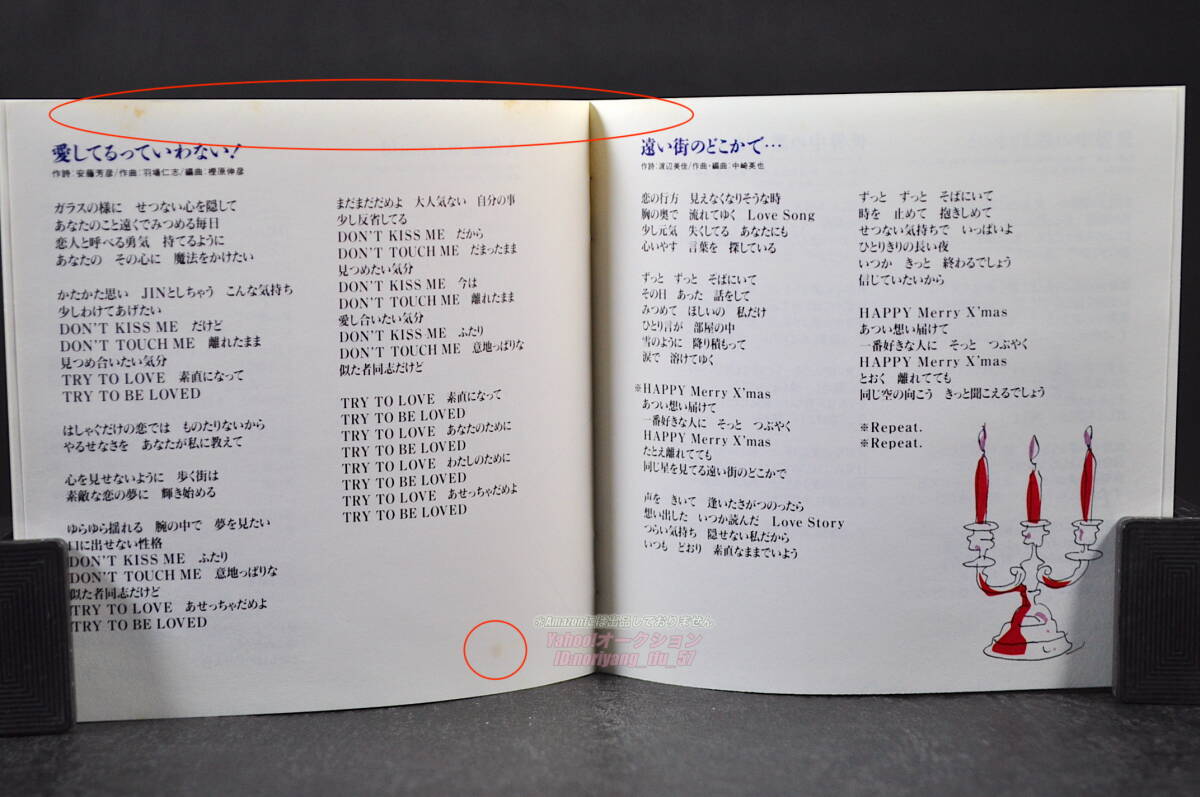 愛してるっていわない!
作詩:安藤芳彦/作曲:羽場仁志/編曲:樫原伸彦
ガラスの様に せつない心を隠して
あなたのこと遠くでみつめる毎日
恋人と呼べる勇気 持てるように
あなたの その心に 魔法をかけたい
かたかた思い JINとしちゃう こんな気持ち
少しわけてあげたい
DON'T KISS ME だけど
DON'T TOUCH ME 離れたまま
見つめ合いたい気分
TRY TO LOVE 素直になって
TRY TO BE LOVED
はしゃぐだけの恋では ものたりないから
やるせなさを あなたが私に教えて
心を見せないように 歩く街は
素敵な恋の夢に 輝き始める
ゆらゆら揺れる 腕の中で 夢を見たい
口に出せない性格
DON'T KISS ME ふたり
DON'T TOUCH ME 意地っぱりな
似た者同志だけど
TRY TO LOVE あせっちゃだめよ
TRY TO BE LOVED
まだまだだめよ 大人気ない 自分の事
少し反省してる
DON'T KISS ME だから
DON'T TOUCH ME だまったまま
見つめたい気分
DON'T KISS ME 今は
DON'T TOUCH ME 離れたまま
愛し合いたい気分
DON'T KISS ME ふたり
DON'T TOUCH ME 意地っぱりな
似た者同志だけど
TRY TO LOVE 素直になって
TRY TO BE LOVED
TRY TO LOVE あなたのために
TRY TO BE LOVED
TRY TO LOVE わたしのために
TRY TO BE LOVED
TRY TO LOVE あせっちゃだめよ
TRY TO BE LOVED
遠い街のどこかで…
作詩:渡辺美佳/作曲・編曲:中崎英也
恋の行方 見えなくなりそうな時
胸の奥で 流れてゆく Love Song
少し元気 失くしてる あなたにも
心いやす 言葉を 探している
ずっと ずっと そばにいて
その日 あった 話をして
みつめて ほしいの 私だけ
ひとり言が 部屋の中
雪のように 降り積もって
涙で 溶けてゆく
※HAPPY Merry X'mas
あつい想い届けて
一番好きな人に そっと つぶやく
HAPPY Merry X'mas
たとえ離れてても
同じ星を見てる遠い街のどこかで
声を きいて 逢いたさがつのったら
想い出した いつか読んだ Love Story
つらい気持ち 隠せない私だから
いつも どおり 素直なままでいよう
ずっと ずっと そばにいて
時を 止めて 抱きしめて
せつない気持ちで いっぱいよ
ひとりきりの長い夜
いつか きっと 終わるでしょう
信じていたいから
HAPPY Merry X'mas
あつい想い届けて
一番好きな人に そっと つぶやく
HAPPY Merry X'mas
とおく 離れてても
同じ空の向こう きっと聞こえるでしょう
※Repeat.
※Repeat.
※Amazonには出品しておりません
Yahoo!オークション
ID:noriyang_tfu_57